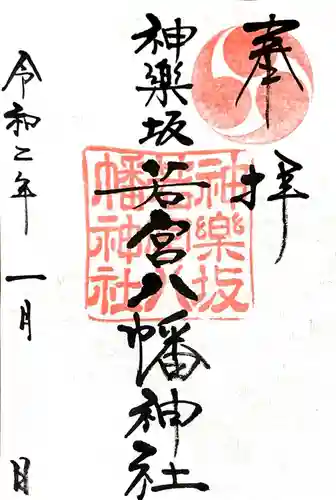 奉拝
神樂坂若宮八幡神社
神樂坂若宮八幡神社
令和二年 一月 日